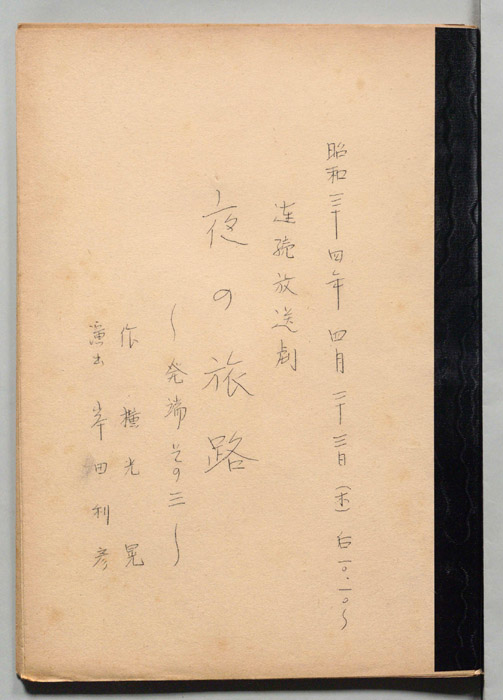 昭和三十四年 四月二十三日(木)后一〇.一〇〜
連続放送劇
夜の旅路
〜発端その三〜
作 横光晃
演出 岸田利彦